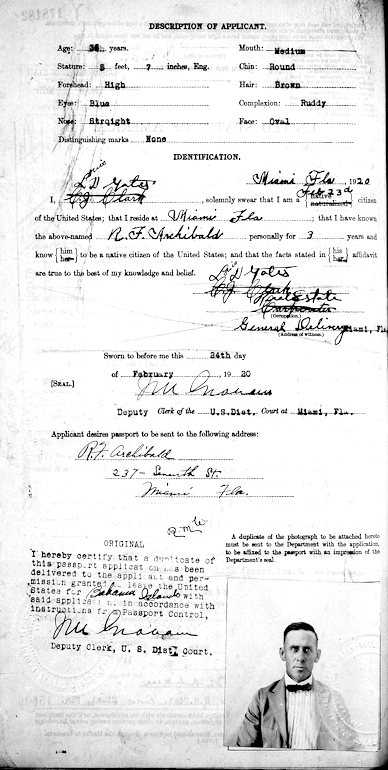 DESCRIPTION OF APPLICANT.
Age: 36 years. Mouth: Medium
Stature: 5 feet, 7 inches, Eng. Chin: Round
Forehead: High Hair: Brown
Eyes: Blue Complexion: Ruddy
Nose: Strqight Face: Oval
Distinguishing marks None
IDENTIFICATION.
Louis Miami Fla , 1920
D Yates Feb. 23d
I, C J Clark , solemnly swear that I am a {native naturalized} citizen
of the United States; that I reside at Miami Fla ; that I have known
the above-named R. F. Archibald personally for 3 years and
know {him her} to be a native citizen of the United States; and that the facts stated in {his her} affidavit
are true to the best of my knowledge and belief.
D Yates
C J Clark
Real Estate
Carpenter
(Occupation.)
General Delivery Miami, Fla.
(Address of witness.)
Sworn to before me this 24th day
of February , 1920
[SEAL.]
Deputy Clerk of the U.S.Dist. Court at Miami, Fla.
Applicant desires passport to be sent to the following address:
R.F. Archibald
237- Seventh St.
Miami Fla.
A duplicate of the photograph to be attached hereto
must be sent to the Department with the application,
to be affixed to the passport with an impression of the
Department's seal.
ORIGINAL
I hereby certify that a duplicate of
this passport application has been
delivered to the applicant and per-
mission granted to leave the United
States for Bahama Islands with
said applicat in accordance with
instructions Passport Control,
Deputy Clerk, U. S. Dist. Court.